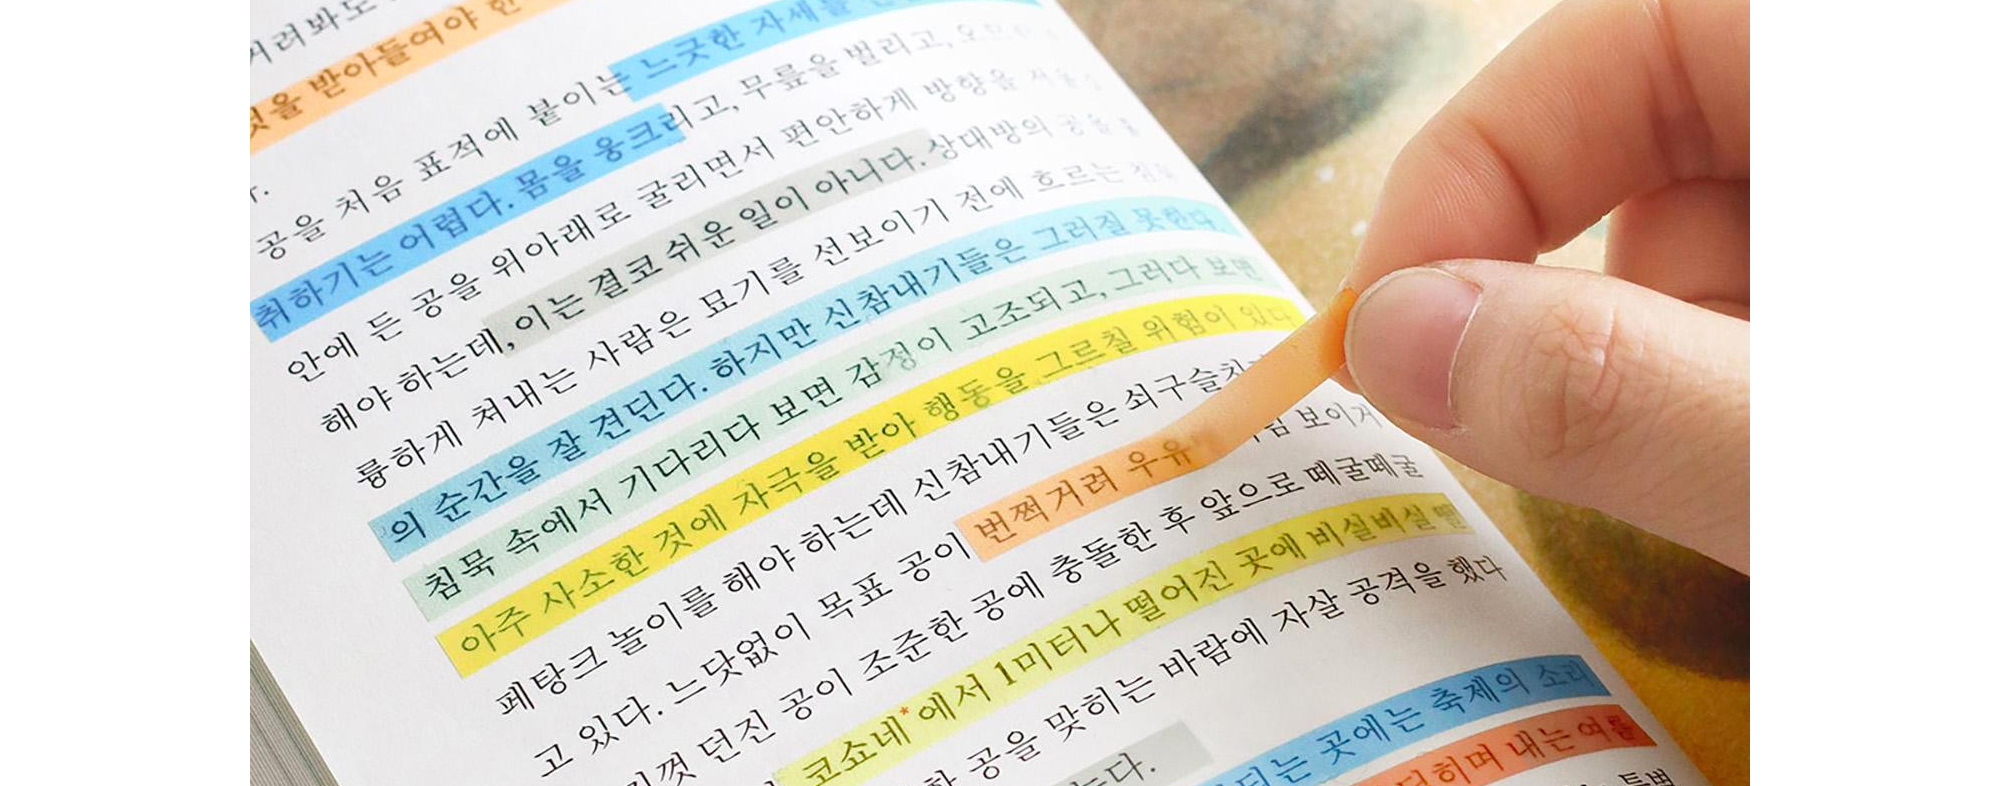 거려봐도
것을 받아들여야 한
다.
공을 처음 표적에 붙이는 느긋한 자세를
취하기는 어렵다. 몸을 웅크리고, 무릎을 벌리고,
안에 든 공을 위아래로 굴리면서 편안하게 방향을
해야 하는데, 이는 결코 쉬운 일이 아니다. 상대방의 공을
륭하게 쳐내는 사람은 묘기를 선보이기 전에 흐르는 침묵
의 순간을 잘 견딘다. 하지만 신참내기들은 그러질 못한다.
침묵 속에서 기다리다 보면 감정이 고조되고, 그러다 보면
아주 사소한 것에 자극을 받아 행동을 그르칠 위험이 있다
페탕크 놀이를 해야 하는데 신참내기들은 쇠구슬치기
고 있다. 느닷없이 목표 공이 번쩍거려 우유 보이거
던진 공이 조준한 공에 충돌한 후 앞으로 떼굴떼굴
코쇼네*에서 1미터나 떨어진 곳에 비실비실
공을 맞히는 바람에 자살 공격을 했다
는다.
되는 곳에는 축제의 소리
히며 내는 여름
특별